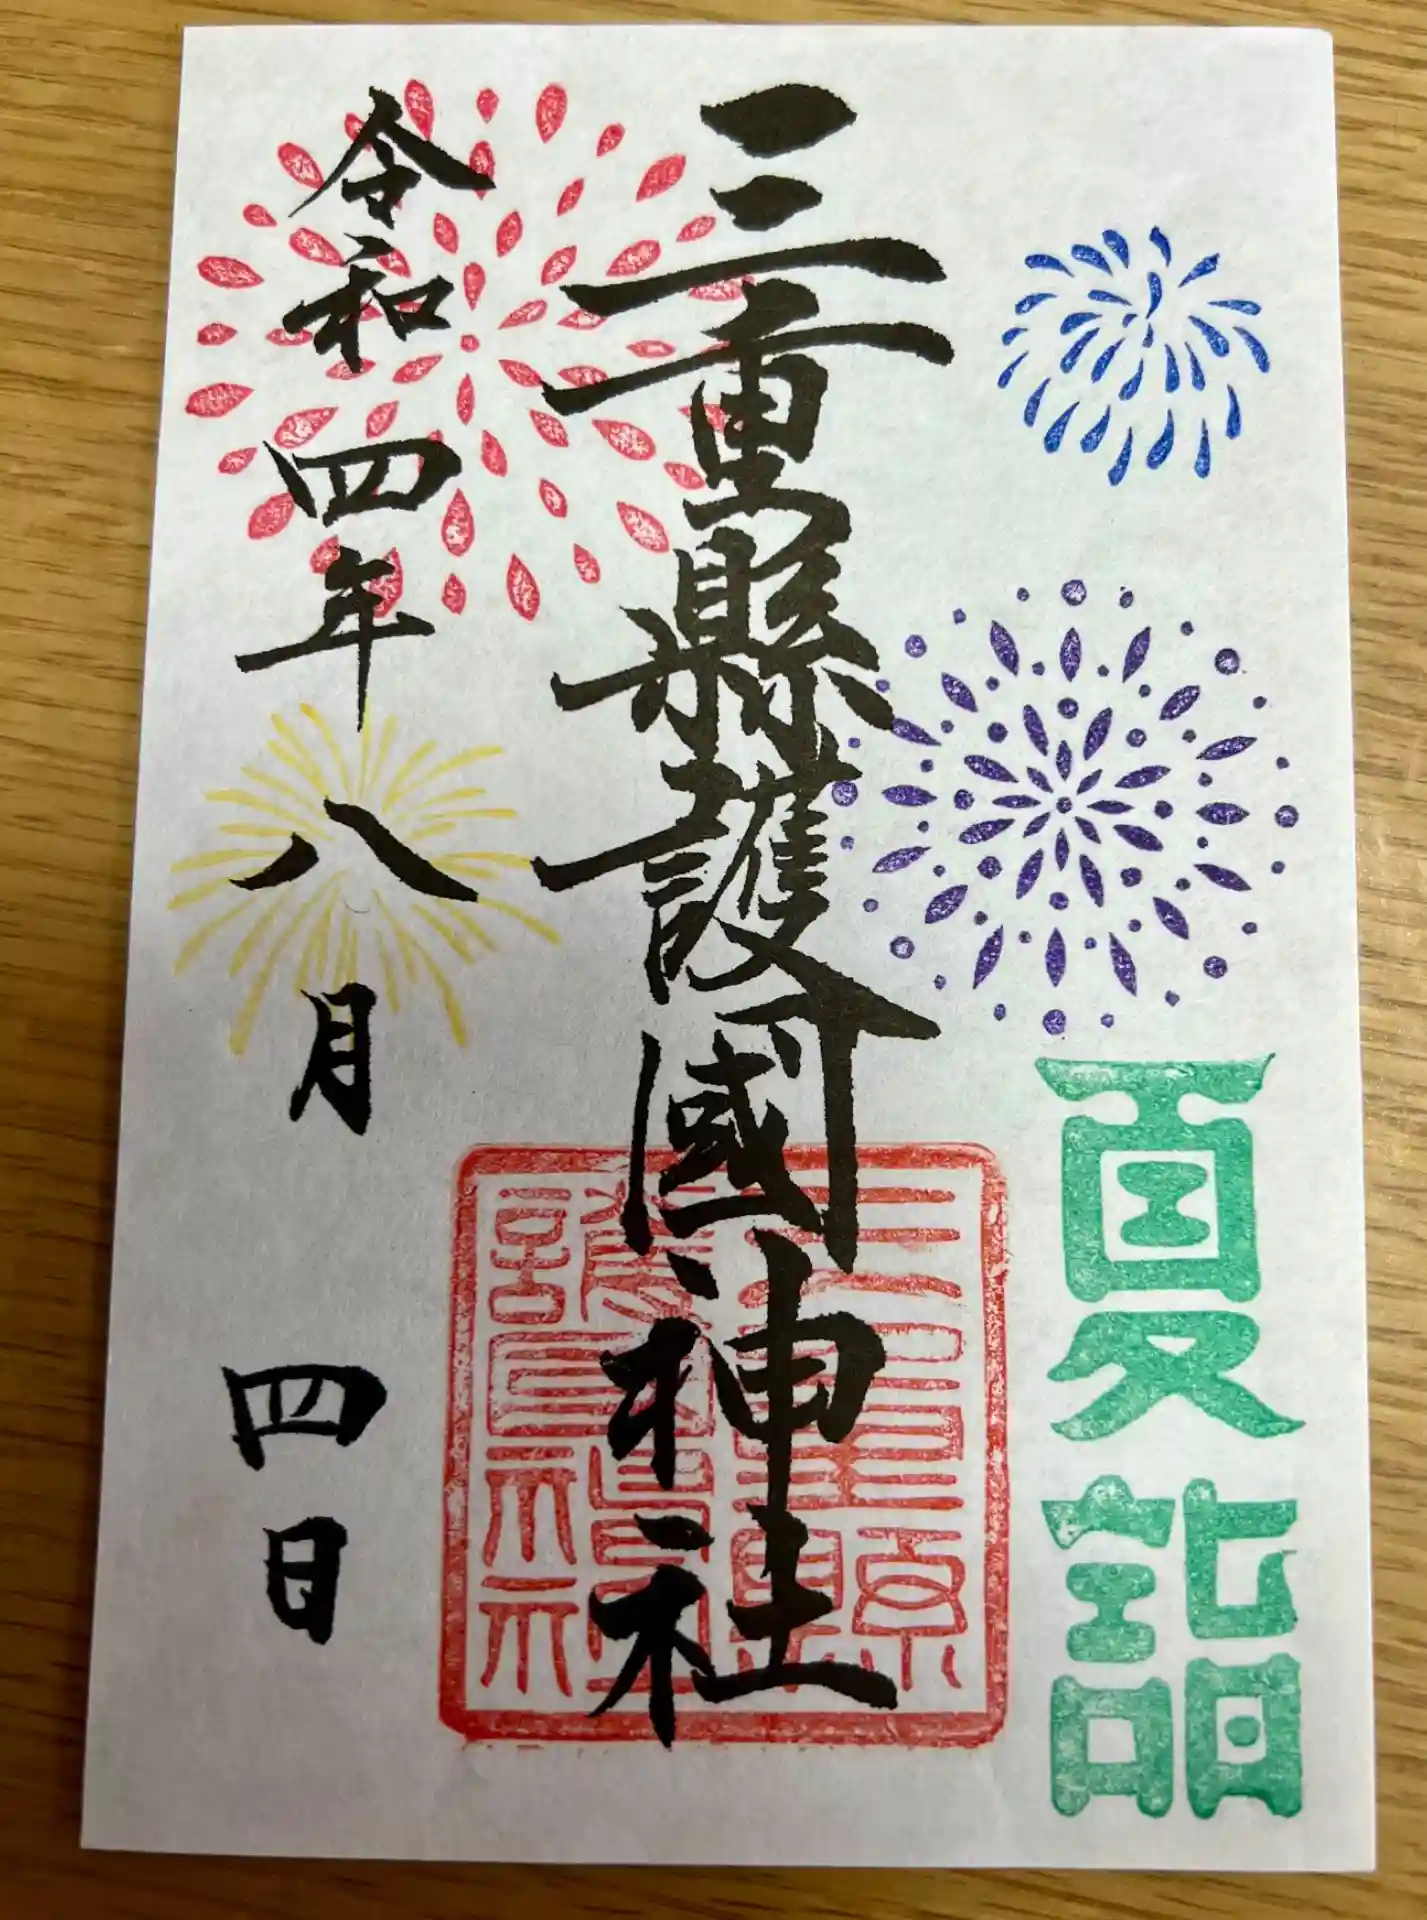 夏詣
三重縣護國神社
三重縣
護國神社
令和四年八月四日